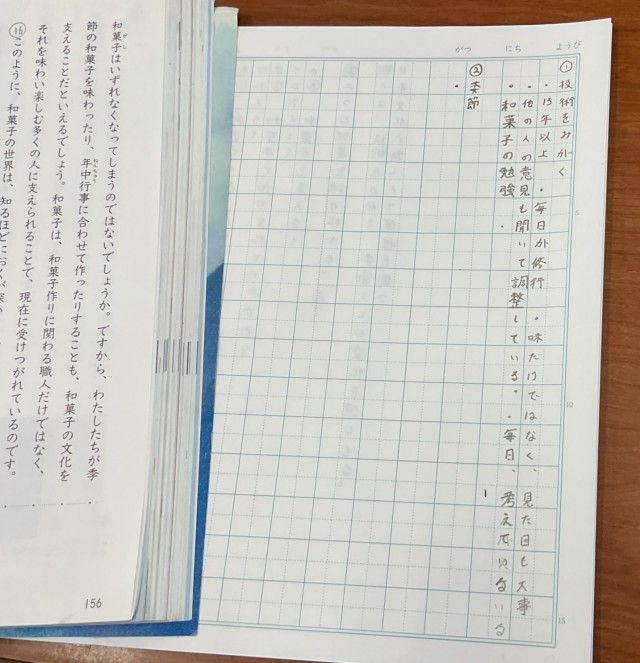 ようび
にち
がつ
①技術をみがく
・15年以上・毎日が修行・味だけではなく、見た目も大事
・他の人の意見も聞いて調整している。・毎日、考え
・和菓子の勉強
②季節
・
5
10
15
和菓子はいずれなくなってしまうのではないでしょうか。ですから、わたしたちが季
節の和菓子を味わったり、年中行事に合わせて作ったりすることも、和菓子の文化を
支えることだといえるでしょう。和菓子は、和菓子作りに関わる職人だけではなく、
それを味わい楽しむ多くの人に支えられることで、現在に受けつがれているのです。
⑯このように、和菓子の世界は、知るほどにおくが深い
156